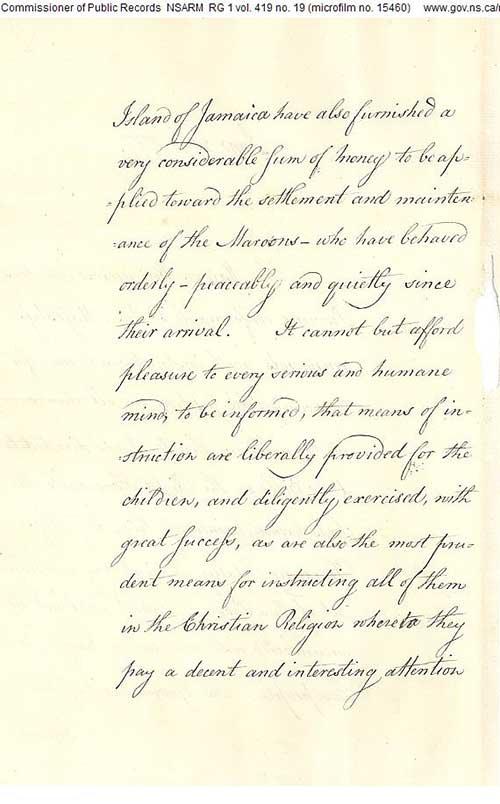 Commissioner of Public Records NSARM RG 1 vol. 419 no. 19 (microfilm no. 15460) www.gov.ns.ca/
Island of Jamaica have also furnished a
very considerable sum of money to be ap=
=plied toward the settlement and mainten=
=ance of the Maroons – who have behaved
orderly – peaceably and quietly since
their arrival. It cannot but afford
pleasure to every serious and humane
mind, to be informed, that means of in=
=struction are liberally provided for the
children, and diligently exercised, with
great success, as are also the most pru=
dent means for instructing all of them
in the Christian Religion whereto they
pay a decent and interesting attention